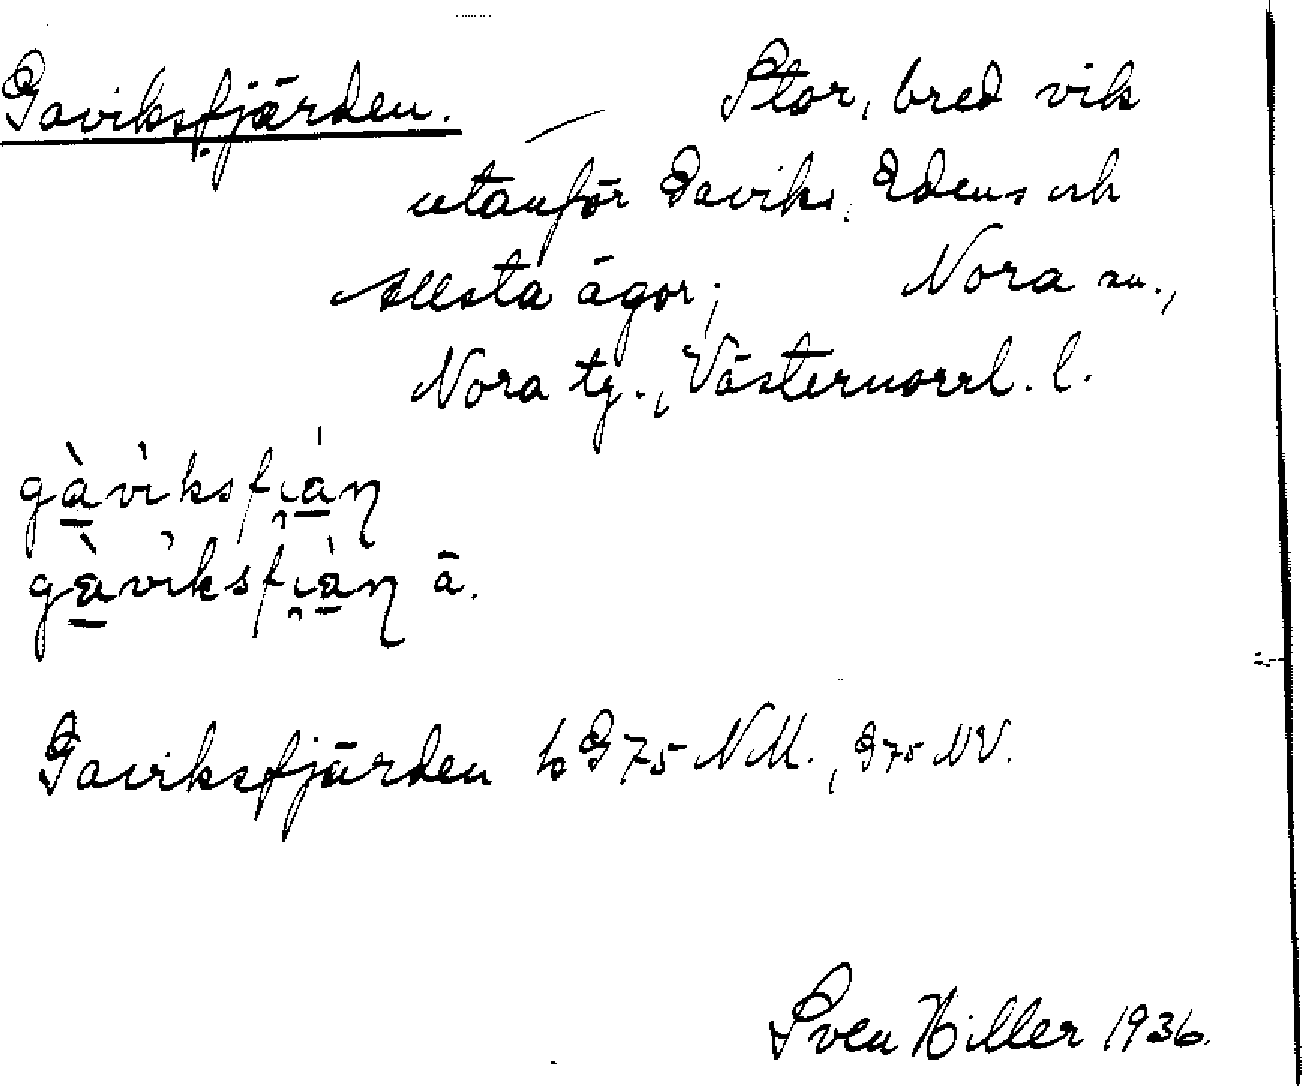 Gaviksfjärden. — Stor, bred vik
utanför Gaviks, Edens och
Allsta ägor; Nora sn.,
Nora tg., Västernorrl. l.
gàviksfi̯áɳ
gàviksfi̯àɳ ā.
Gaviksfjärden G 75 NM., G 75 NV.
Sven Hiller 1936.